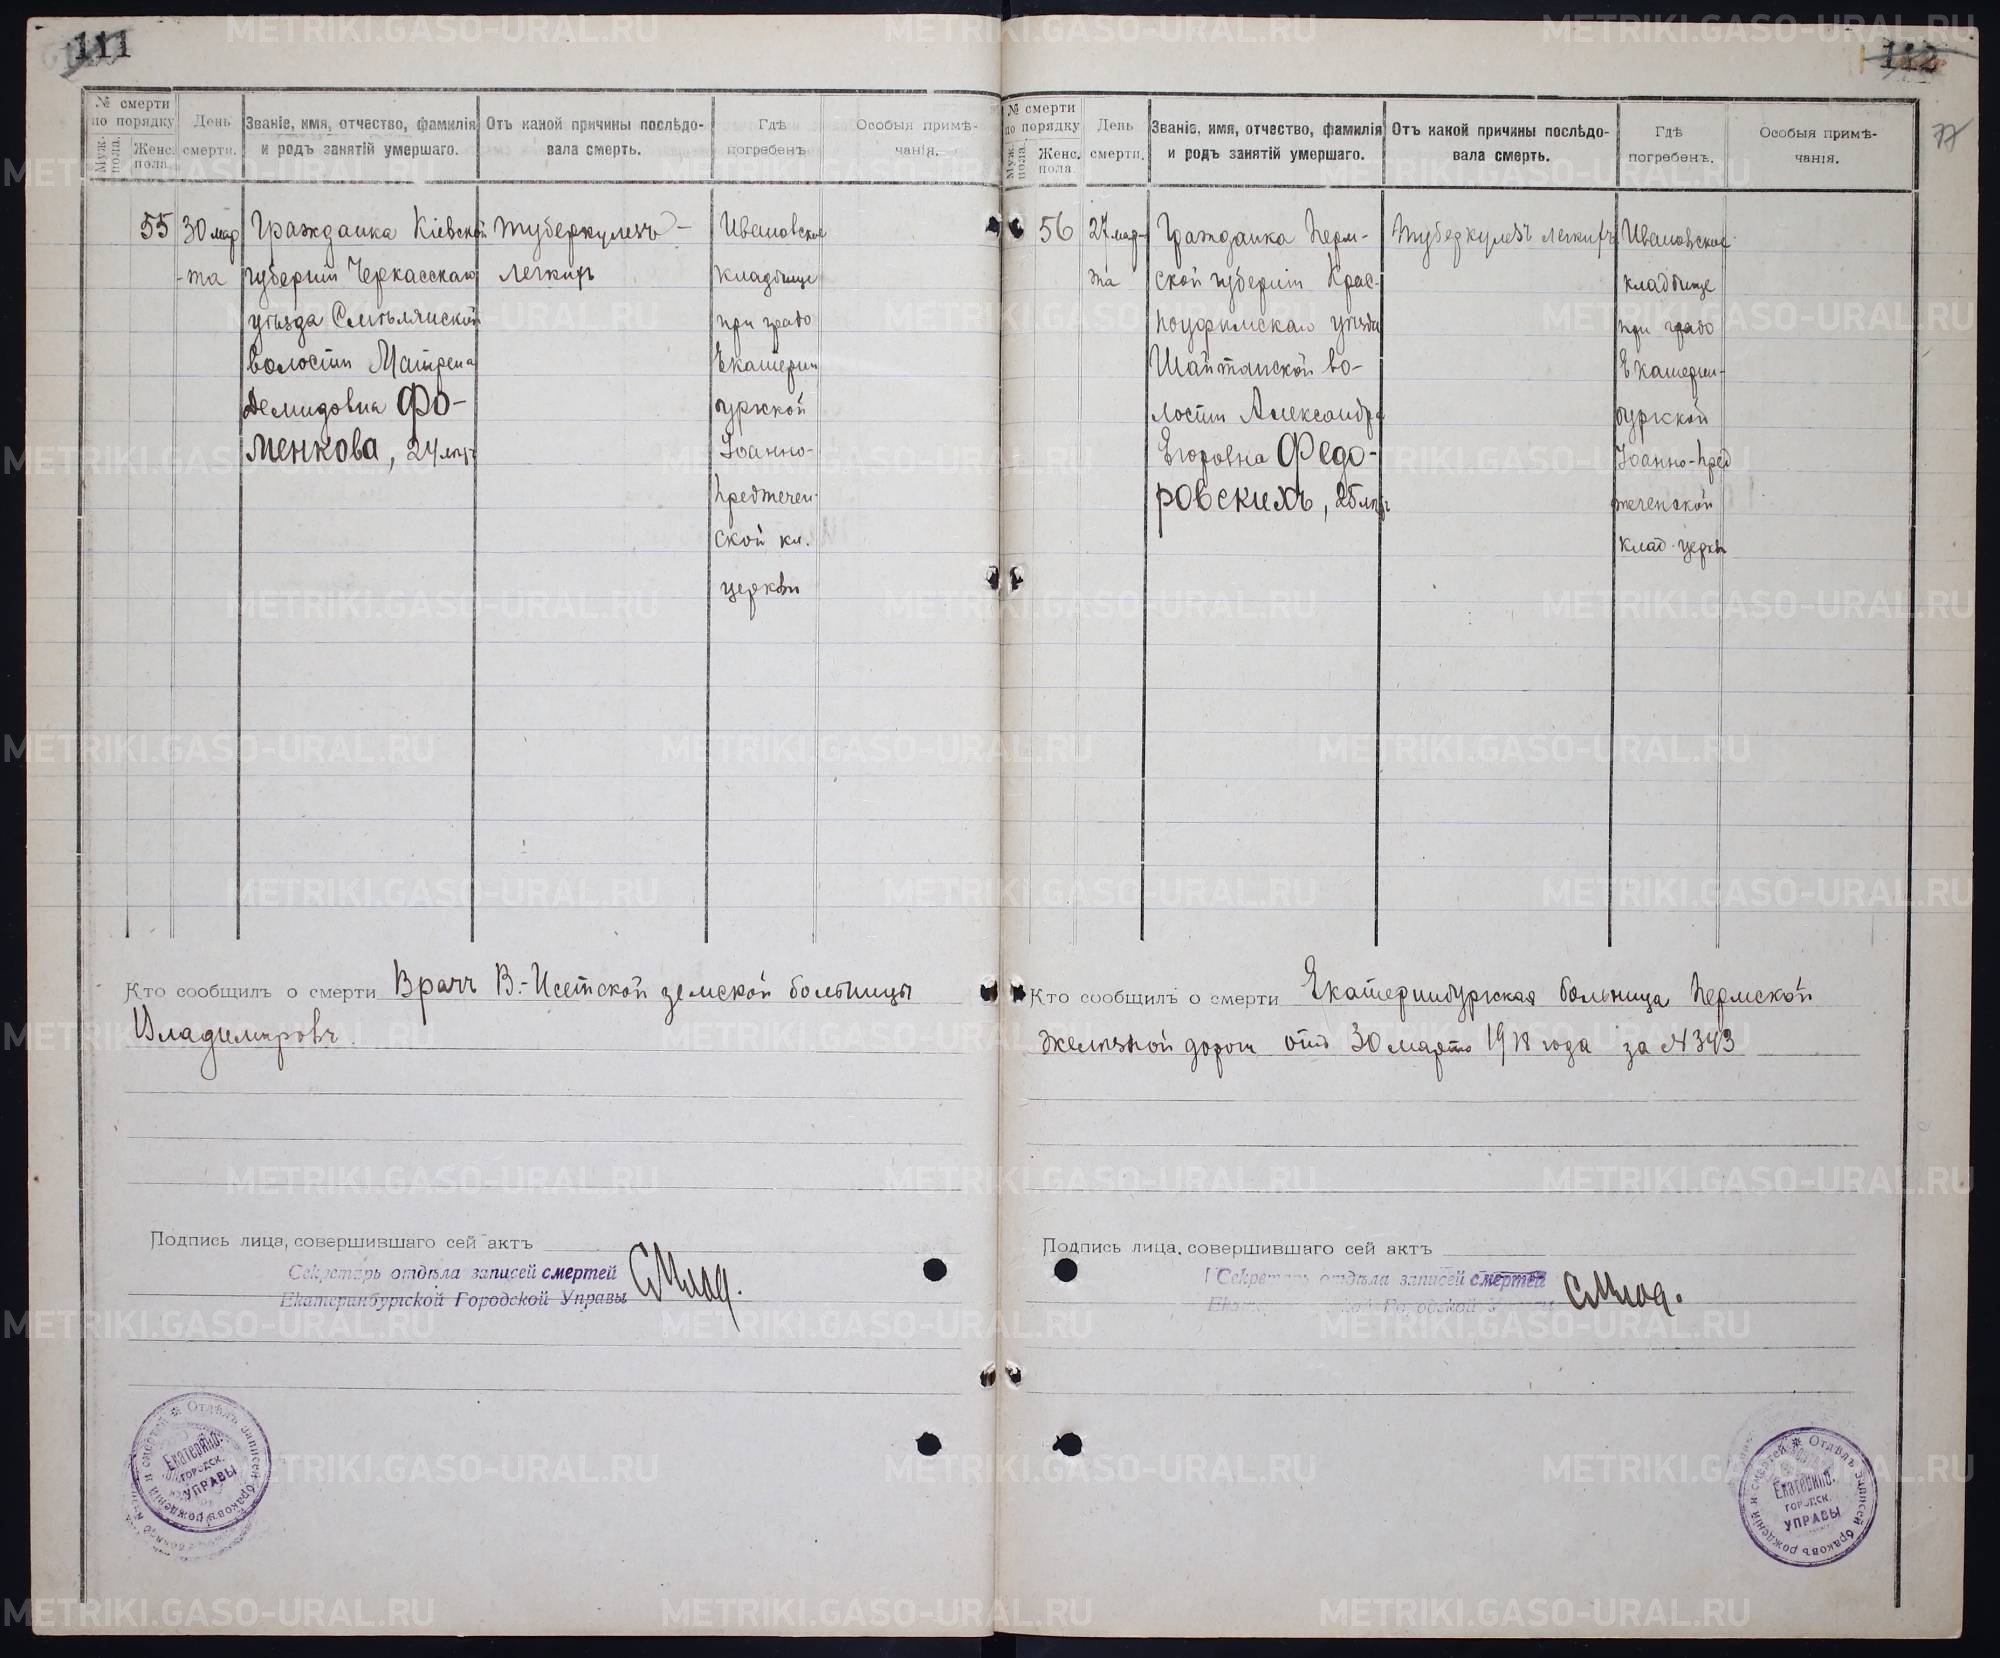 111
№ смерти по порядку
Муж. пола.
Женс. пола.
День смерти.
Званіе, имя, отчество, фамилія и родъ занятій умершаго.
Отъ какой причины послѣдовала смерть.
Гдѣ погребенъ
Особыя примѣчанія.
55
30 мар
-та
Гражданка Кіевской
губерніи Черкасскаго
уѣзда Смѣлянской
волости Матрена
Демидовна Фо-
менкова, 24 лѣтъ
туберкулезъ
легкихъ
Ивановское
кладбище
при градо
Екатерин
бургской
Іоанно-
Предтечен-
ской кл.
церкви
Кто сообщилъ о смерти Врачъ В.-Исетской земской больницы
Владимировъ.
Подпись лица, совершившаго сей актъ
Секретарь отдѣла записей смертей
Екатеринбургской Городской Управы
Отдѣлъ записей браковъ рожденій и смертей
Екатеринб.
городск.
управы
112
77
№ смерти по порядку
Муж. пола.
Женс. пола.
День смерти.
Званіе, имя, отчество, фамилія и родъ занятій умершаго.
Отъ какой причины послѣдовала смерть.
Гдѣ погребенъ.
Особыя примѣчанія.
56
27 мар-
та
Гражданка Перм-
ской губерніи Крас-
ноуфимскаго уѣзда
Шайтанской во-
лости Александра
Егоровна Федо-
ровскихъ, 25 лѣтъ
Туберкулезъ легкихъ
Ивановское
кладбище
при градо
Екатерин-
бургской
Іоанно-Пред
теченской
клад. церкви
Кто сообщилъ о смерти Екатеринбургская больница Пермской
желѣзной дороги отъ 30 марта 1918 года за № 343
Подпись лица, совершившаго сей актъ
Секретарь отдѣла записей смертей
Отдѣлъ записей браковъ рожденій и смертей
Екатеринб.
городск.
управы
METRIKI.GASO-URAL.RU